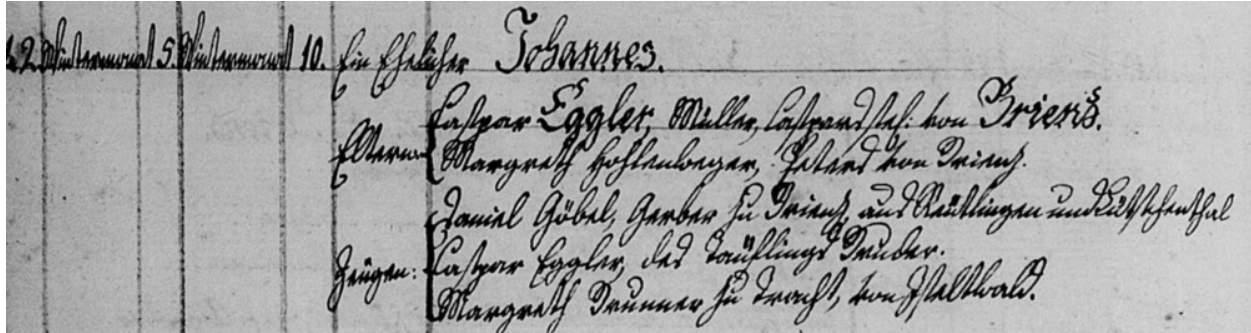 42. Wintermonat 5. Wintermonat 10. Ein Ehelicher Johannes.
Caspar Eggler, Müller, Caspars sel: von Brienz.
Eltern: Margreth Hohlenweger, Peters von Brienz.
Daniel Göbel, Gerber zu Brienz, aus Reütlingen und Lütschenthal
Zeügen: Caspar Eggler, des Täuflings Bruder.
Margreth Brunner zu Tracht, von Iseltwald.